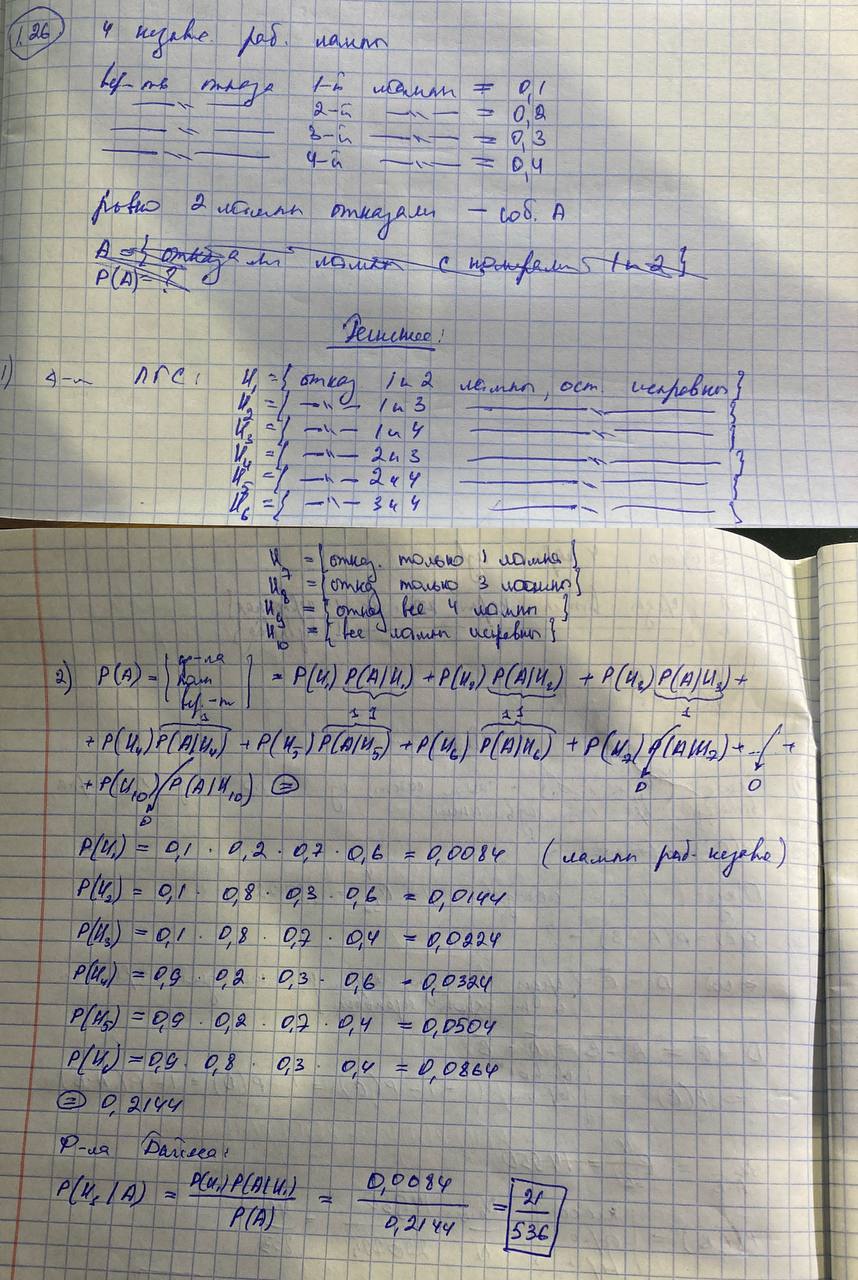 1.26 4 незав. раб. лампы
вер-ть отказа 1-й лампы = 0,1
—〃— 2-й —〃— = 0,2
—〃— 3-й —〃— = 0,3
—〃— 4-й —〃— = 0,4
ровно 2 лампы отказали — соб. A
A = { отказали лампы с номерами 1 и 2}
P(A) = ?
Решение:
1) Д-м ПГС: H₁ = { отказ 1 и 2 лампы, ост. исправны}
H₂ = { —〃— 1 и 3 —〃— }
H₃ = { —〃— 1 и 4 —〃— }
H₄ = { —〃— 2 и 3 —〃— }
H₅ = { —〃— 2 и 4 —〃— }
H₆ = { —〃— 3 и 4 —〃— }
H₇ = {отказ. только 1 лампа}
H₈ = {отказ только 3 лампы}
H₉ = {отказ все 4 лампы }
H₁₀ = { все лампы исправны}
2) P(A) = [ф-ла полн вер.-т] = P(H₁) P(A|H₁) + P(H₂) P(A|H₂) + P(H₂) P(A|H₃) +
1 1 1
+ P(H₄) P(A|H₄) + P(H₅) P(A|H₅) + P(H₆) P(A|H₆) + P(H₇) P(A|H₇) + ... +
0 0
+ P(H₁₀) P(A|H₁₀) =
0
P(H₁) = 0,1 · 0,2 · 0,7 · 0,6 = 0,0084 (лампы раб. незав)
P(H₂) = 0,1 · 0,8 · 0,3 · 0,6 = 0,0144
P(H₃) = 0,1 · 0,8 · 0,7 · 0,4 = 0,0224
P(H₄) = 0,9 · 0,2 · 0,3 · 0,6 = 0,0324
P(H₅) = 0,9 · 0,2 · 0,7 · 0,4 = 0,0504
P(H₆) = 0,9 · 0,8 · 0,3 · 0,4 = 0,0864
= 0,2144
Ф-ла Байеса:
P(H₁|A) = P(H₁) P(A|H₁) / P(A) = 0,0084 / 0,2144 = 21/536